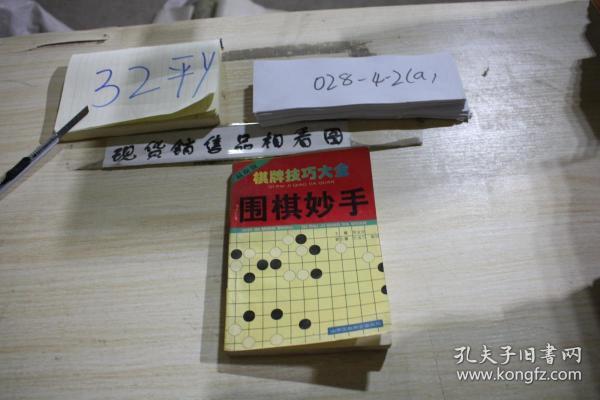 32平y
028-4-2(a,
现货销售品相看图
棋牌技巧大全
QI PAI JI QIAO DA QUAN
围棋妙手
孔夫子旧书网
www.kongfz.com